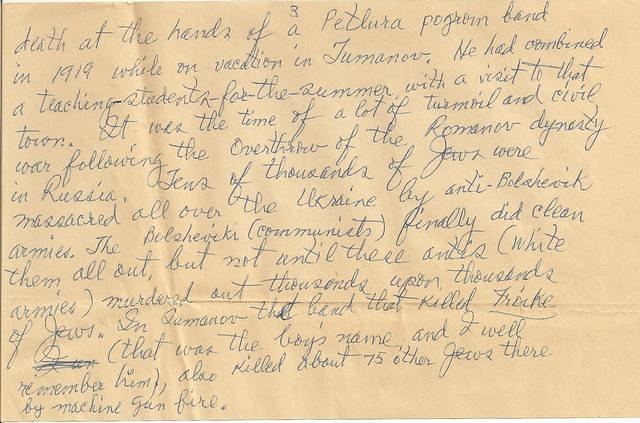 3
death at the hands of a Petlura pogrom band
in 1919 while on vacation in Tumanov. He had combined
a teaching-students-for-the-summer with a visit to that
town. It was the time of a lot of turmoil and civil
war following the overthrow of the Romanov dynasty
in Russia. Tens of thousands of Jews were
massacred all over the Ukraine by anti-Bolshevik
armies. The Bolsheviki (communists) finally did clean
them all out, but not until these antis (White
armies) murdered out thousands upon thousands
of Jews. In Tumanov the band that killed Froike
(that was the boy's name, and I well
remember him), also killed about 75 other Jews there
by machine gun fire.